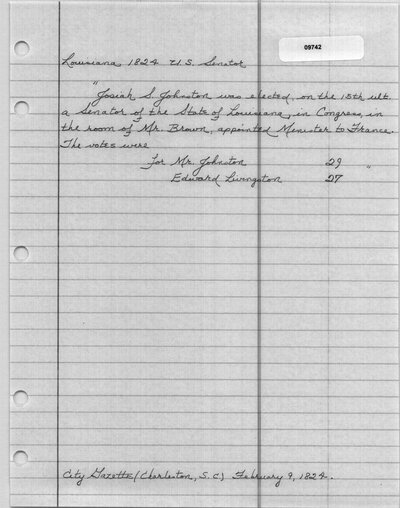 09742
Louisiana 1824 U.S. Senator
"Josiah S. Johnston was elected, on the 15th ult.
a Senator of the State of Louisiana, in Congress, in
the room of Mr. Brown, appointed Minister to France.
The votes were
for Mr. Johnston 29 "
Edward Livingston 27
City Gazette (Charleston, S.C.) February 9, 1824.